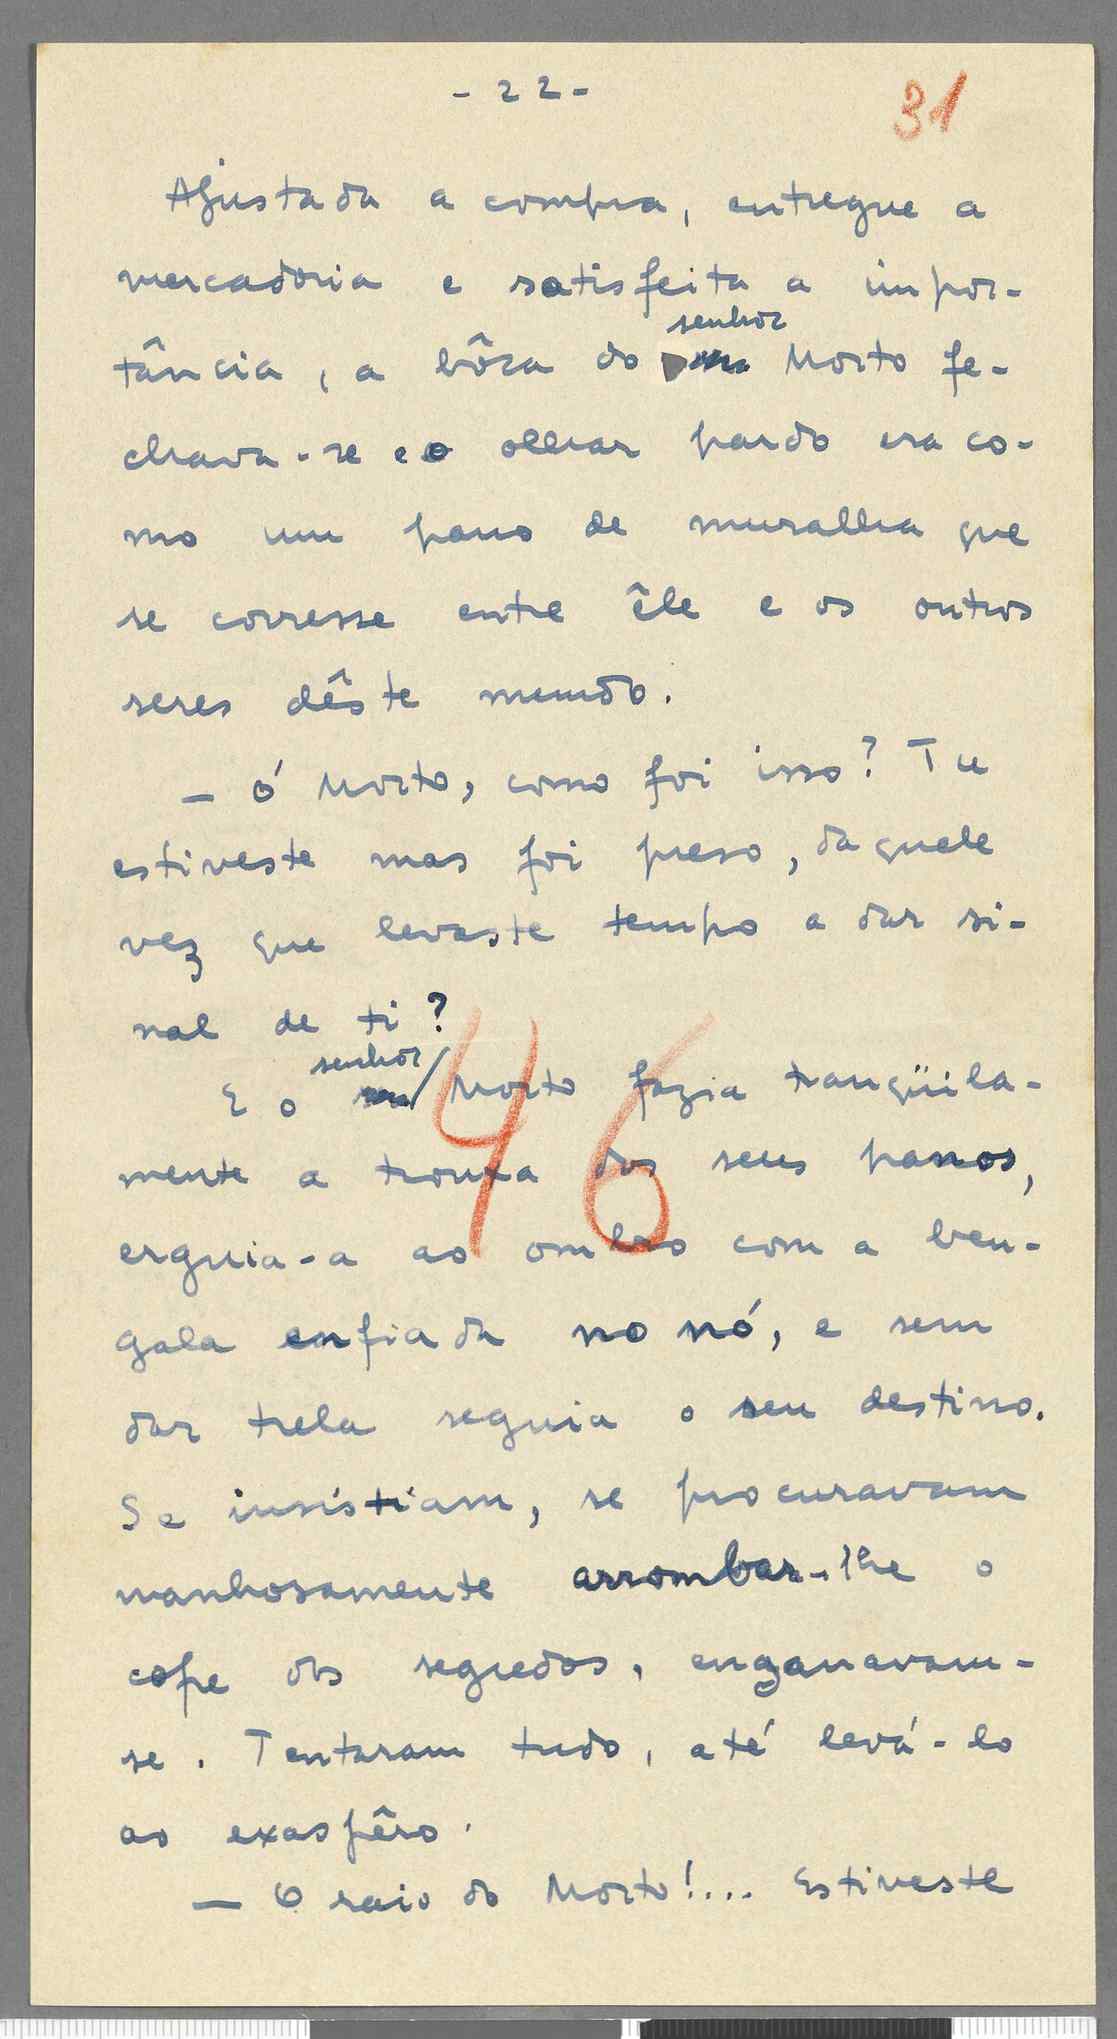 - 22 -
31
Ajustada a compra, entregue a
mercadoria e satisfeita a impor-
senhor
tância, a bôca do Morto fe-
chava-se e o olhar pardo era co-
mo um pano de muralha que
se corresse entre êle e os outros
seres dêste mundo.
— Ó Morto, como foi isso? Tu
estiveste mas foi preso, daquele
vez que levaste tempo a dar si-
nal de ti?
senhor
E o Morto fazia tranqüila-
46
mente a trouxa dos seus panos,
erguia-a ao ombro com a ben-
gala enfiada no nó, e sem
dar trela seguia o seu destino.
Se insistiam, se procuravam
manhosamente arrombar-lhe o
cofre dos segredos, enganavam-
se. Tentaram tudo, até levá-lo
ao exaspêro.
— O raio do Morto!... Estiveste